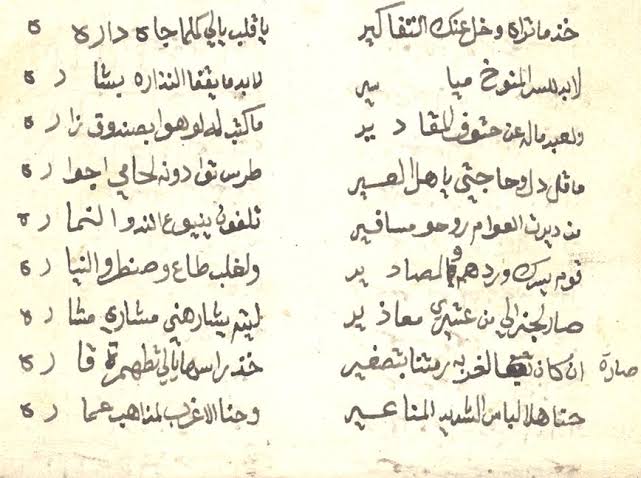 خذ ما تراه وخل عنك التفاكير يا قلب يالي كلما جاه داره ه
لابد للسر المنوخ ميا سير لابد ما يقفا النذاره بشا ره
ولعبد ماله عن حتوف المقا دير ما كتب له لو هو ابصندوق زا ره
ما قل دل وحاجتي ياهل العير طرس توادونه لحامي اجوا ره
من ديرت العوام روحو مسافير تلفون ينبوع الندو النما ره
قوم يسرك وردهم والمصا دير ولغلب طاع وصنطر والنيا ره
صار لجنرالي من عشيري معاذ ير ليتم يشار هني مشاري مشا ره
صارة ان كان الغربه ريتنا بتصغير خذ راسها يالي تطهمرة قا ره
حنا هل الباس الشديد المناعير وحنا الاغرب لمذاهب عما ره